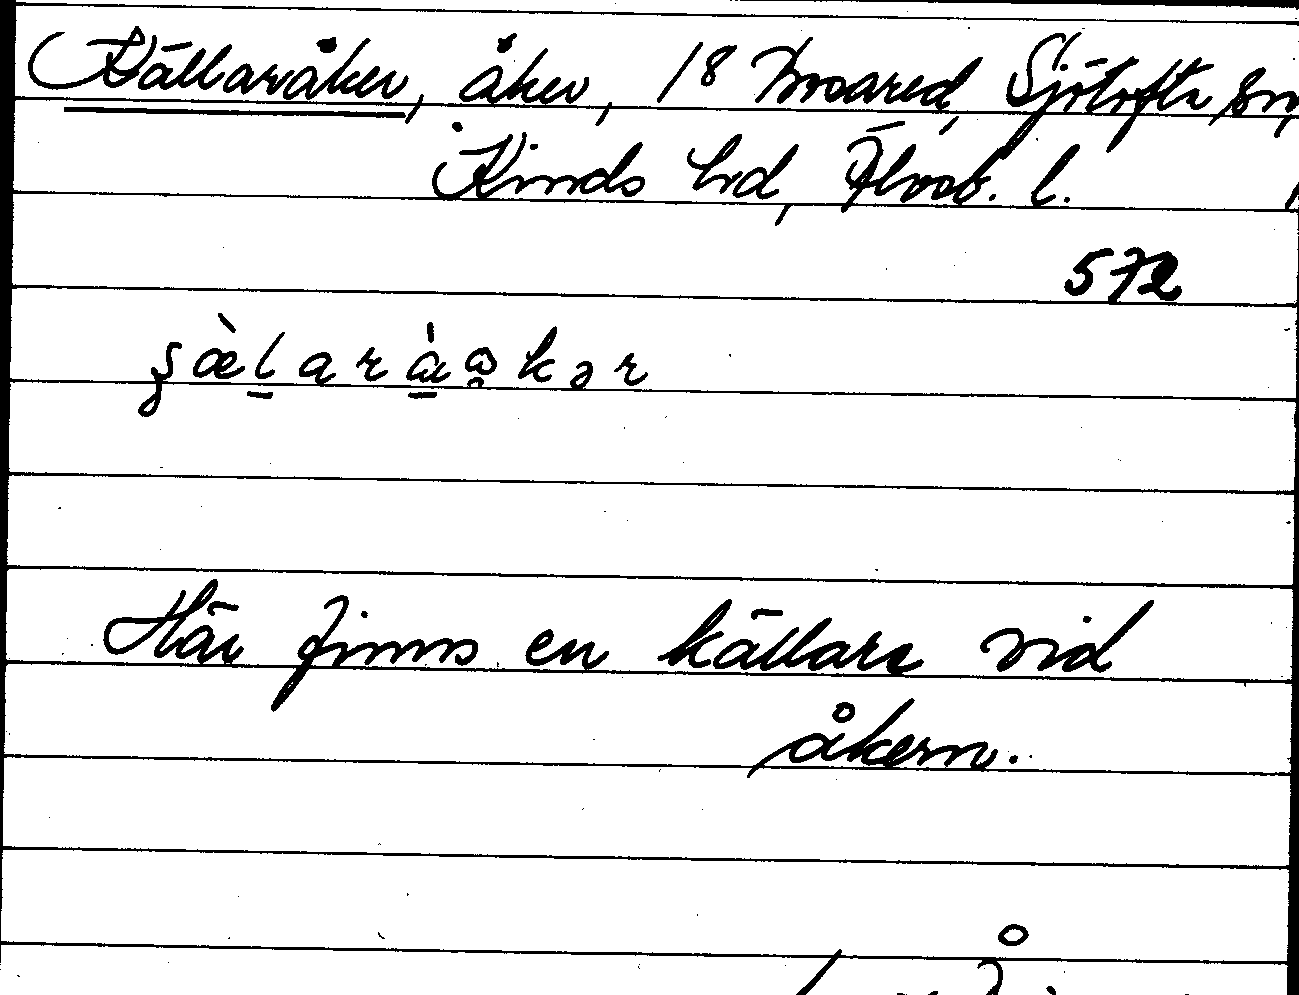 Källaråker, åker, 18 Mossared, Sjötofta sn,
Kinds hd, Älvsb. l.
572
Här finns en källare vid
åkern.